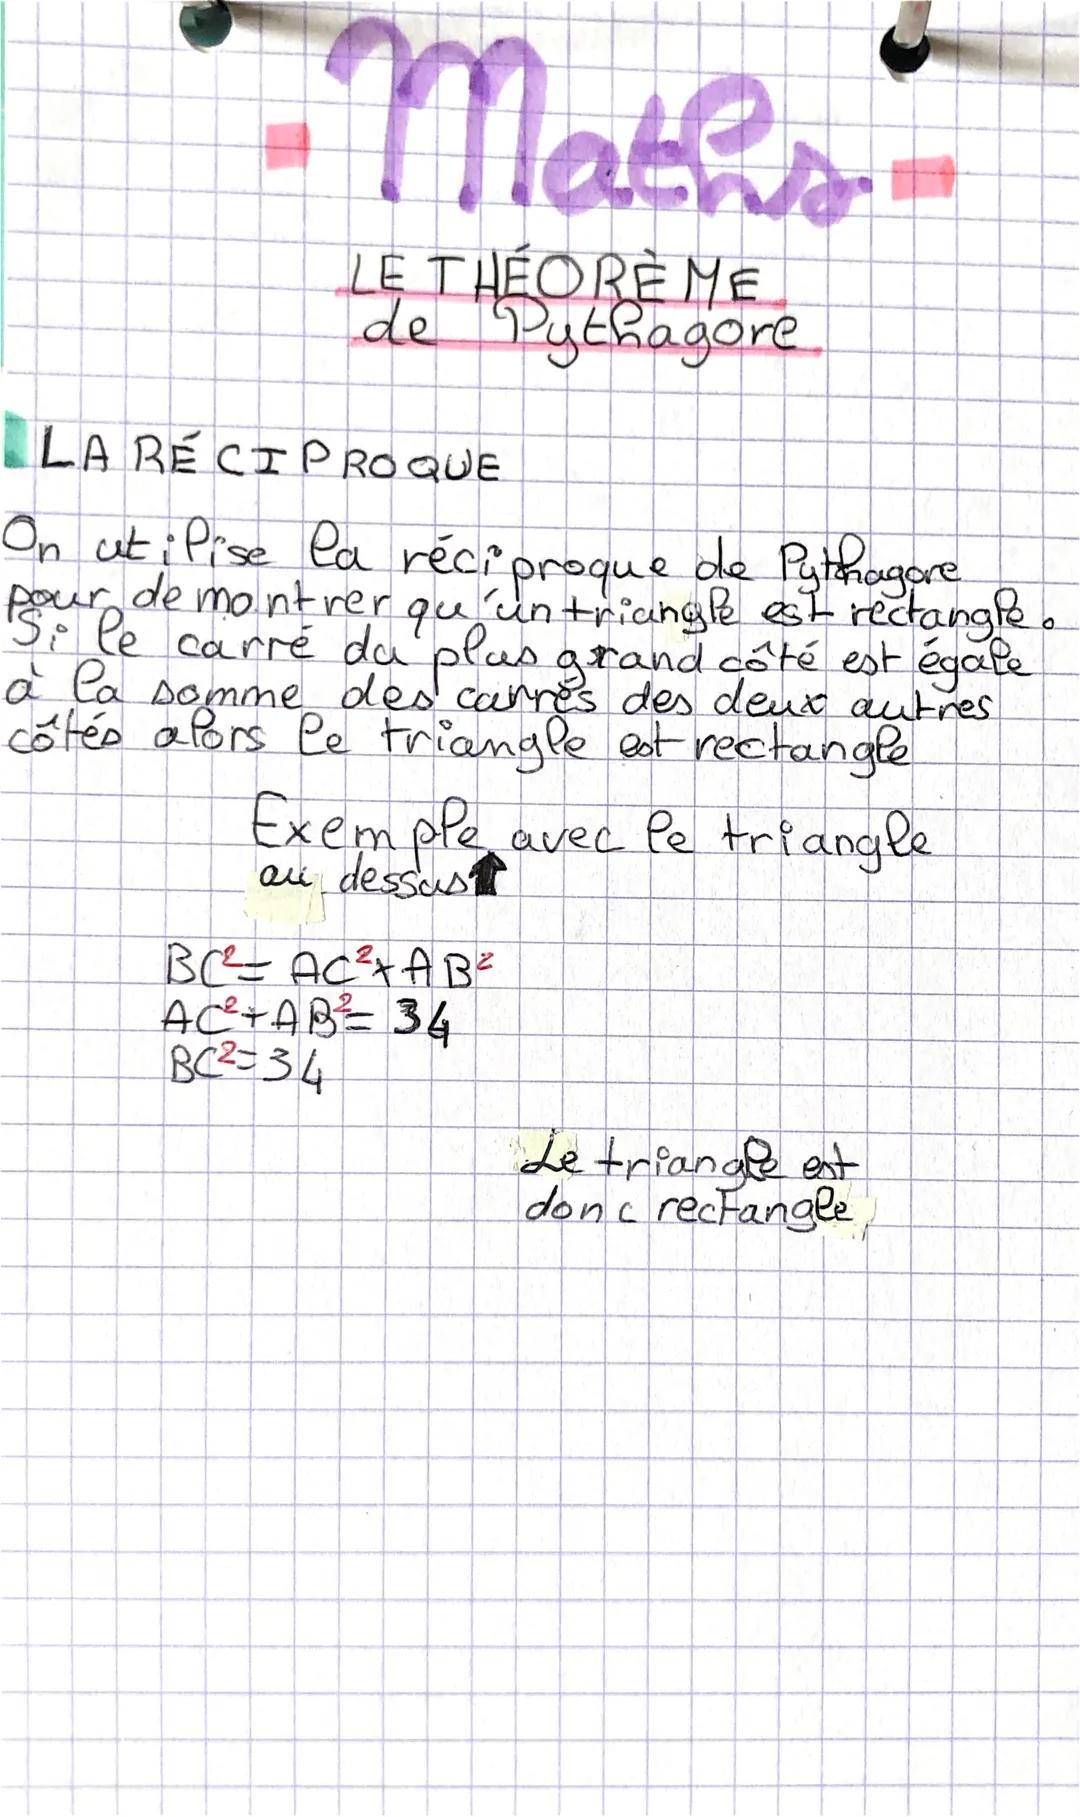 Maths
LE THÉORÈME
de Pythagore
LA RÉCIPROQUE
On utilise la réciproque de Pythagore
pour demontrer qu'un triangle est rectangle.
Si le carré du plus grand côté est égale
à la somme des carrés des deux autres
côtés alors le triangle est rectangle
Exemple avec le triangle
au dessus
BC²= AC²+AB²
AC²+AB²= 34
BC²=34
Le triangle est
donc rectangle